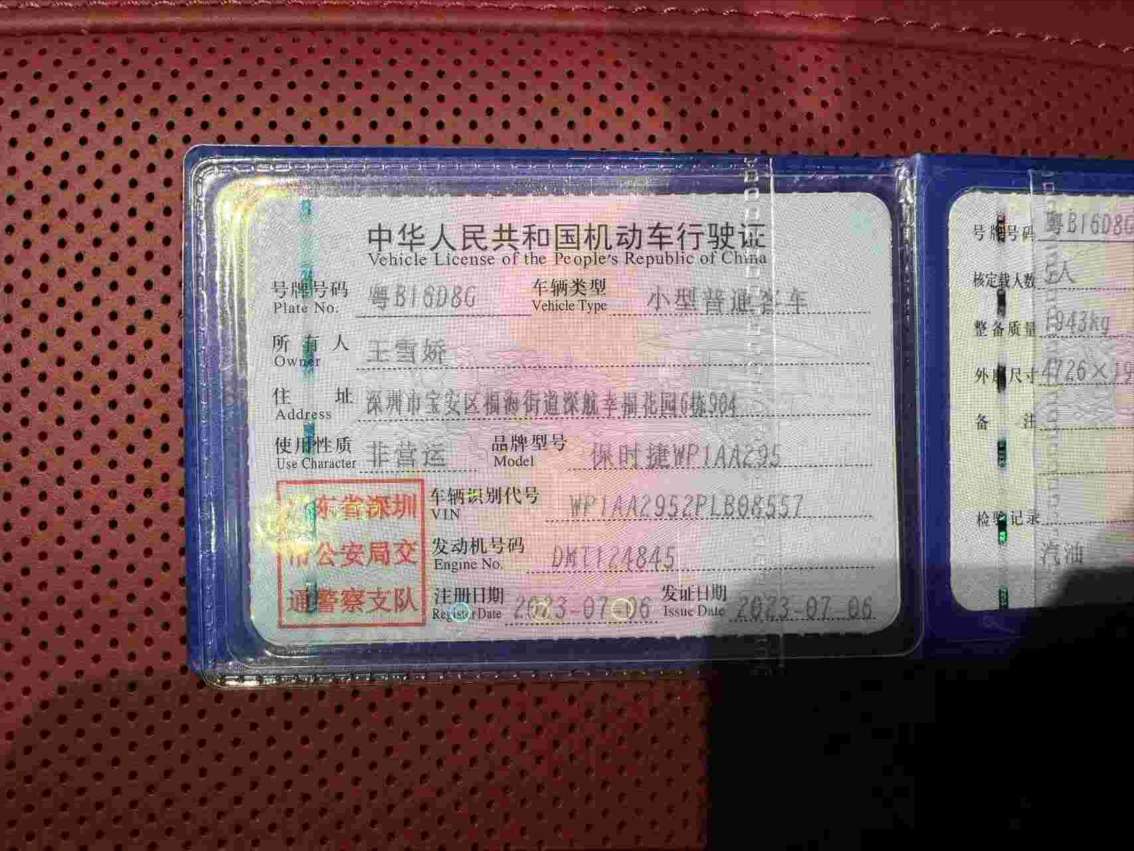 中华人民共和国机动车行驶证
Vehicle License of the People's Republic of China
号牌号码 粤B16D8G 车辆类型 小型普通客车
Plate No. Vehicle Type
所有人 王雪娇
Owner
住址 深圳市宝安区福海街道深航幸福花园6栋904
Address
使用性质 非营运 品牌型号 保时捷WP1AA295
Use Character Model
车辆识别代号 WP1AA2952PLB08557
VIN
发动机号码 DMT124845
Engine No.
注册日期 2023-07-06 发证日期 2023-07-06
Register Date Issue Date
东省深圳
市公安局交
通警察支队
号牌号码 粤B16D8G
核定载人数 5人
整备质量 1943kg
外廓尺寸 4726×19
备注
检验记录
汽油